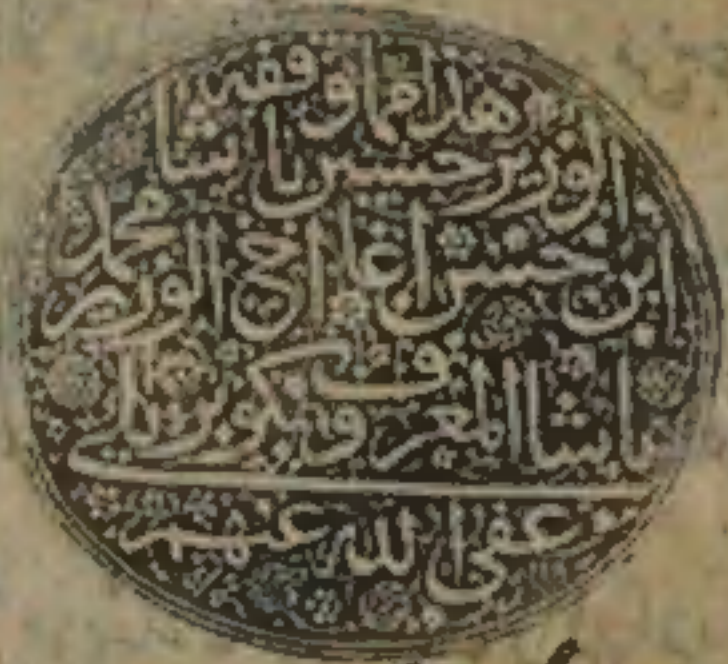 هذا مما وقفه
الوزير حسين باشا
ابن حسن اغا اخي الوزير محمد
باشا المعروف بكوبريلي
عفى الله عنهم